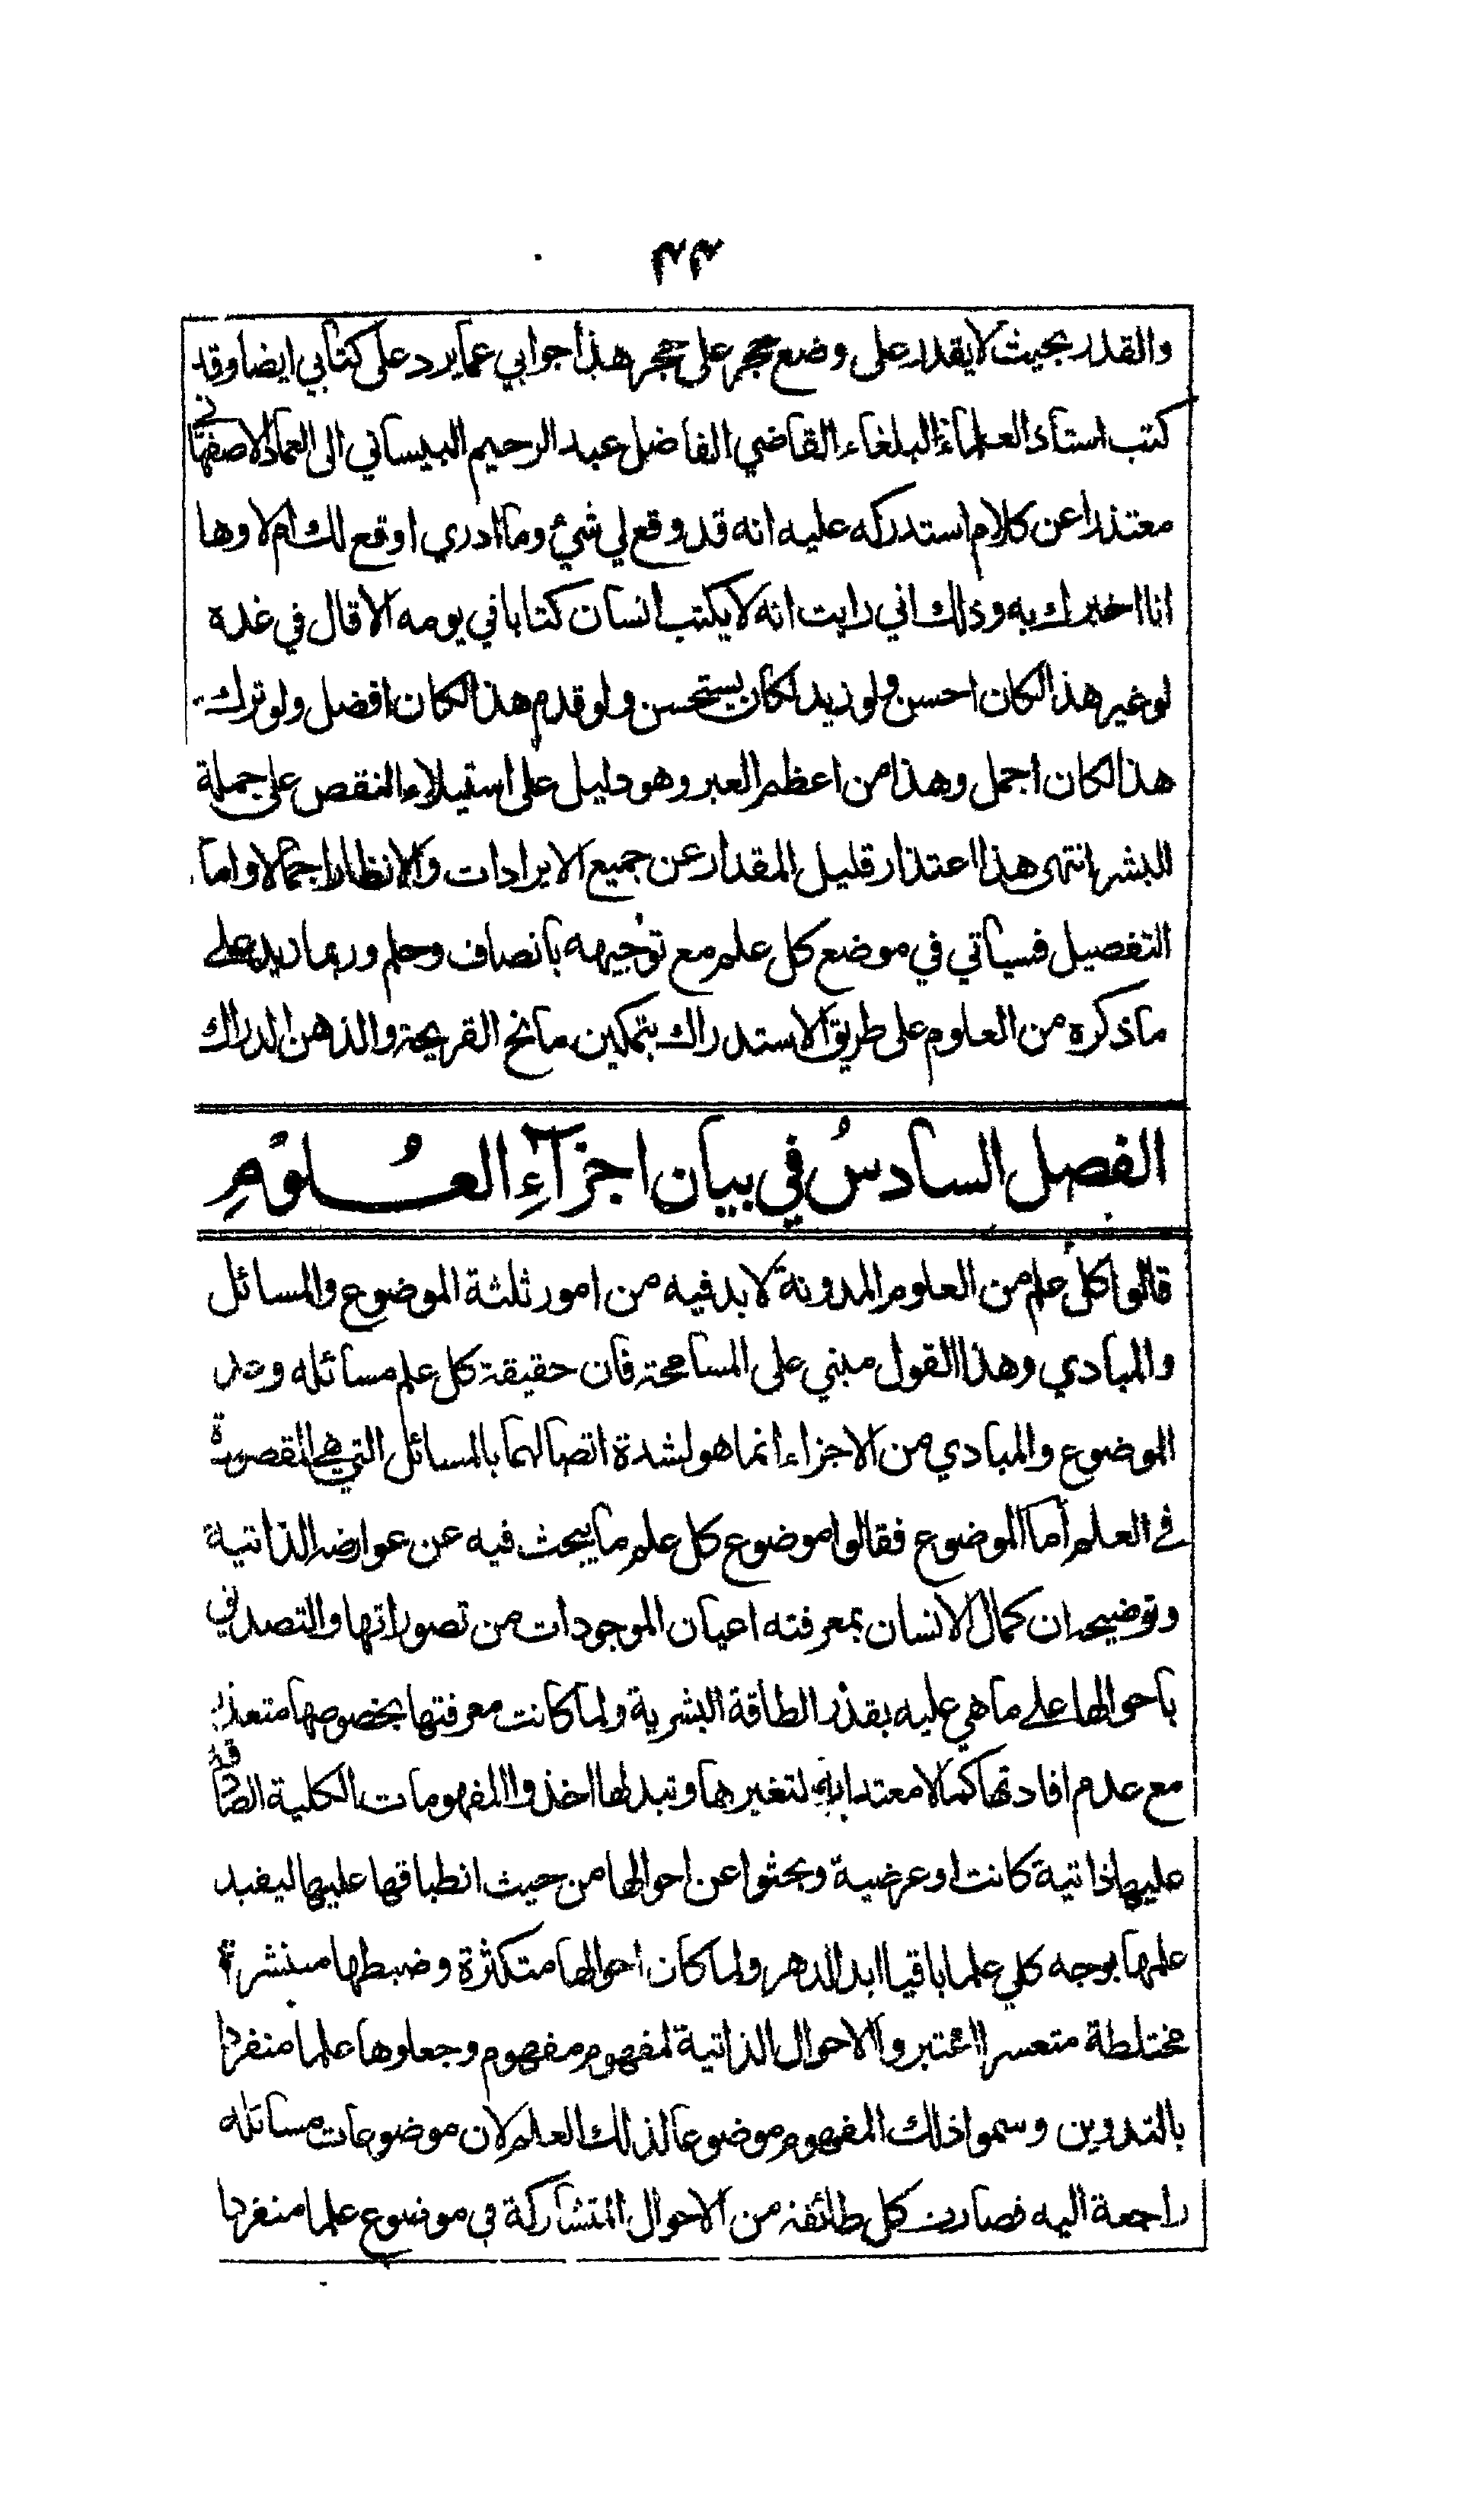 ٤٤
والقدر بحيث لا يقدر على وضع حجر على حجر هذا جوابي عما يرد على كتابي ايضا وقد
كتب استاذ العلماء البلغاء القاضي الفاضل عبد الرحيم البيساني الى العماد الاصفهاني
معتذرا عن كلام استدركه عليه انه قد وقع لي شئ وما ادري اوقع لك ام لا وها
انا اخبرك به وذلك اني رايت انه لا يكتب انسان كتابا في يومه الا قال في غده
لو غير هذا لكان احسن ولو زيد لكان يستحسن ولو قدم هذا لكان افضل ولو ترك
هذا لكان اجمل وهذا من اعظم العبر وهو دليل على استيلاء النقص على جملة
البشر انتهى هذا اعتذار قليل المقدار عن جميع الايرادات والانظار اجمالا واما
التفصيل فسياتي في موضع كل علم مع توجيهه بانصاف وحلم وربما زيد على
ما ذكره من العلوم على طريق الاستدراك بتمكين مانح القريحة والذهن الدراك
الفصل السادس في بيان اجزآءِ العلومِ
قالوا كل علم من العلوم المدونة لا بد فيه من امور ثلثة الموضوع والمسائل
والمبادي وهذا القول مبني على المسامحة فان حقيقة كل علم مسائله وعد
الموضوع والمبادي من الاجزاء انما هو لشدة اتصالهما بالمسائل التي هي المقصودة
في العلم اما الموضوع فقالوا موضوع كل علم ما يبحث فيه عن عوارضه الذاتية
وتوضيحه ان كمال الانسان بمعرفته اعيان الموجودات من تصوراتها والتصديق
باحوالها على ما هي عليه بقدر الطاقة البشرية ولما كانت معرفتها بخصوصها متعذرة
مع عدم افادتها كمالا معتدا به لتغيرها وتبدلها اخذوا المفهومات الكلية الصادقة
عليها ذاتية كانت او عرضية وبحثوا عن احوالها من حيث انطباقها عليها ليفيد
علمها بوجه كلي علما باقيا ابد الدهر ولما كان احوالها متكثرة وضبطها منتشرة
مختلطة متعسرا اعتبروا الاحوال الذاتية لمفهوم مفهوم وجعلوها علما منفردا
بالتدوين وسموا ذلك المفهوم موضوعا لذلك العلم لان موضوعات مسائله
راجعة اليه فصارت كل طائفة من الاحوال المتشاركة في موضوع علما منفردا